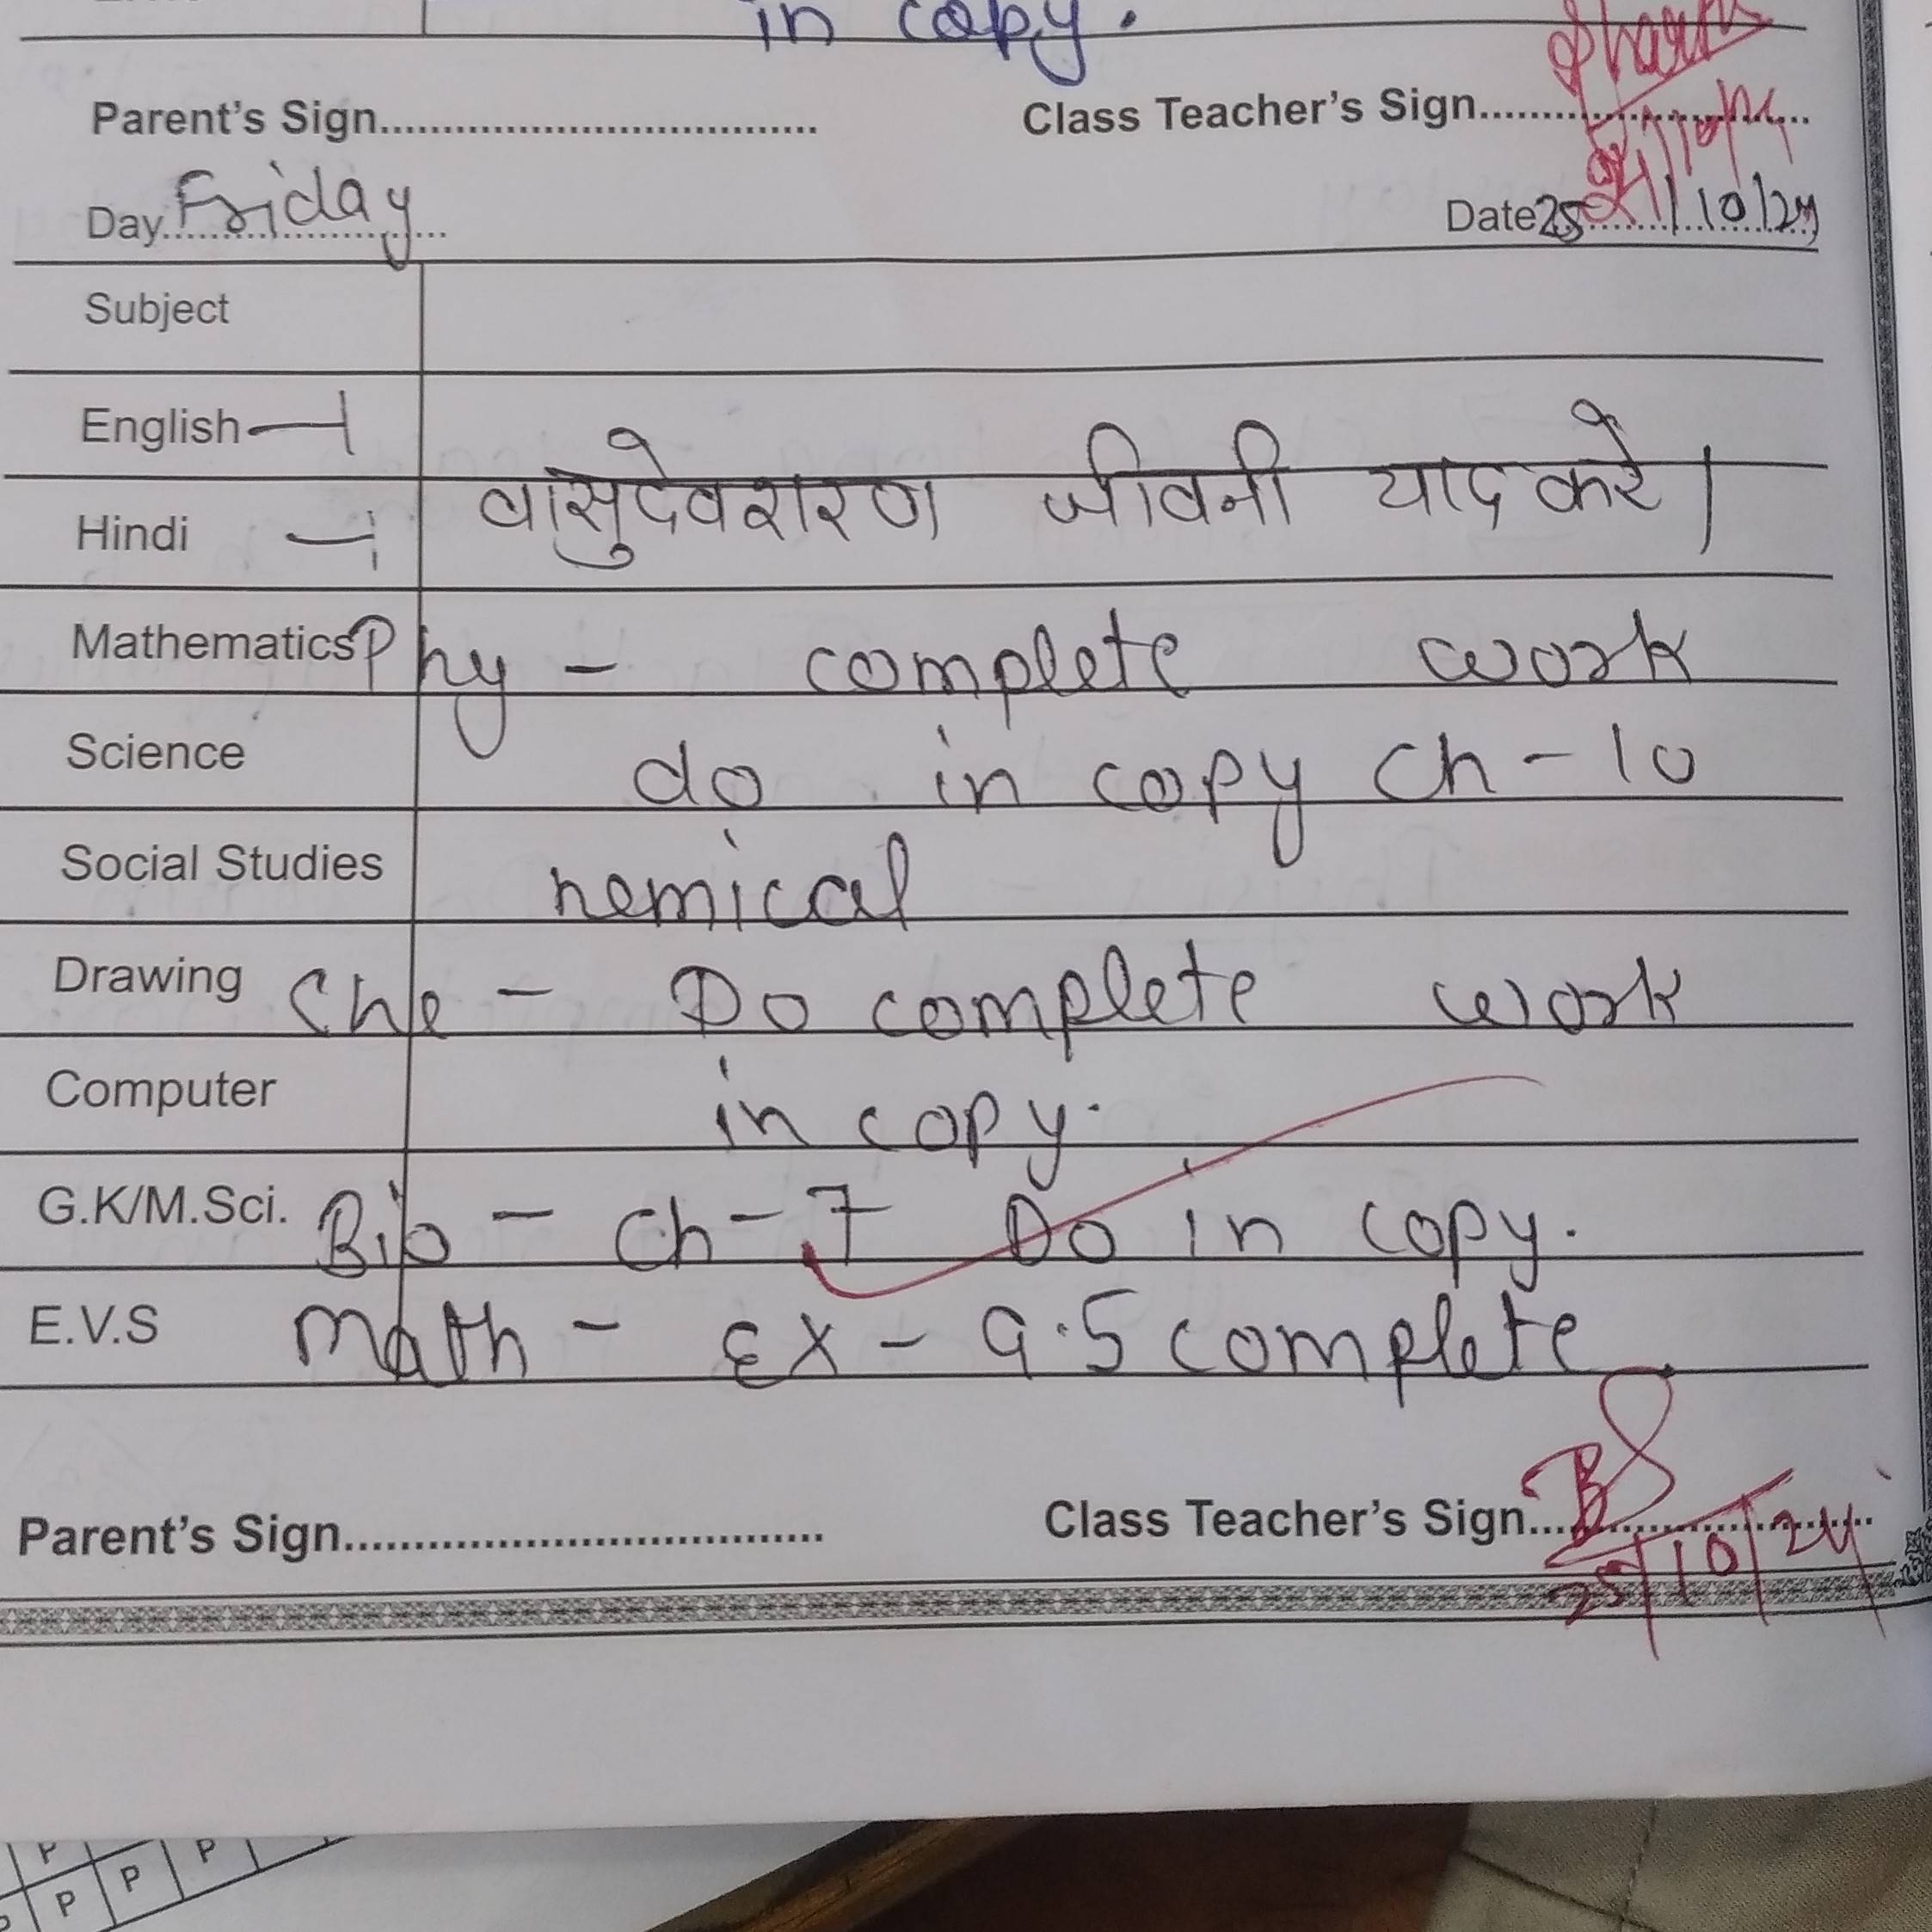 in copy.
Parent's Sign.................................. Class Teacher's Sign..........................
Day Friday Date 25/10/24
Subject
English
Hindi वासुदेवशरण जीवनी याद करे।
Mathematics Phy - complete work
Science do in copy Ch-10
Social Studies hemical
Drawing Che - Do complete work
Computer in copy.
G.K/M.Sci. Bio - Ch-7 Do in copy.
E.V.S Math - Ex - 9.5 complete.
Parent's Sign.................................. Class Teacher's Sign..........................
25/10/24
P P
P P